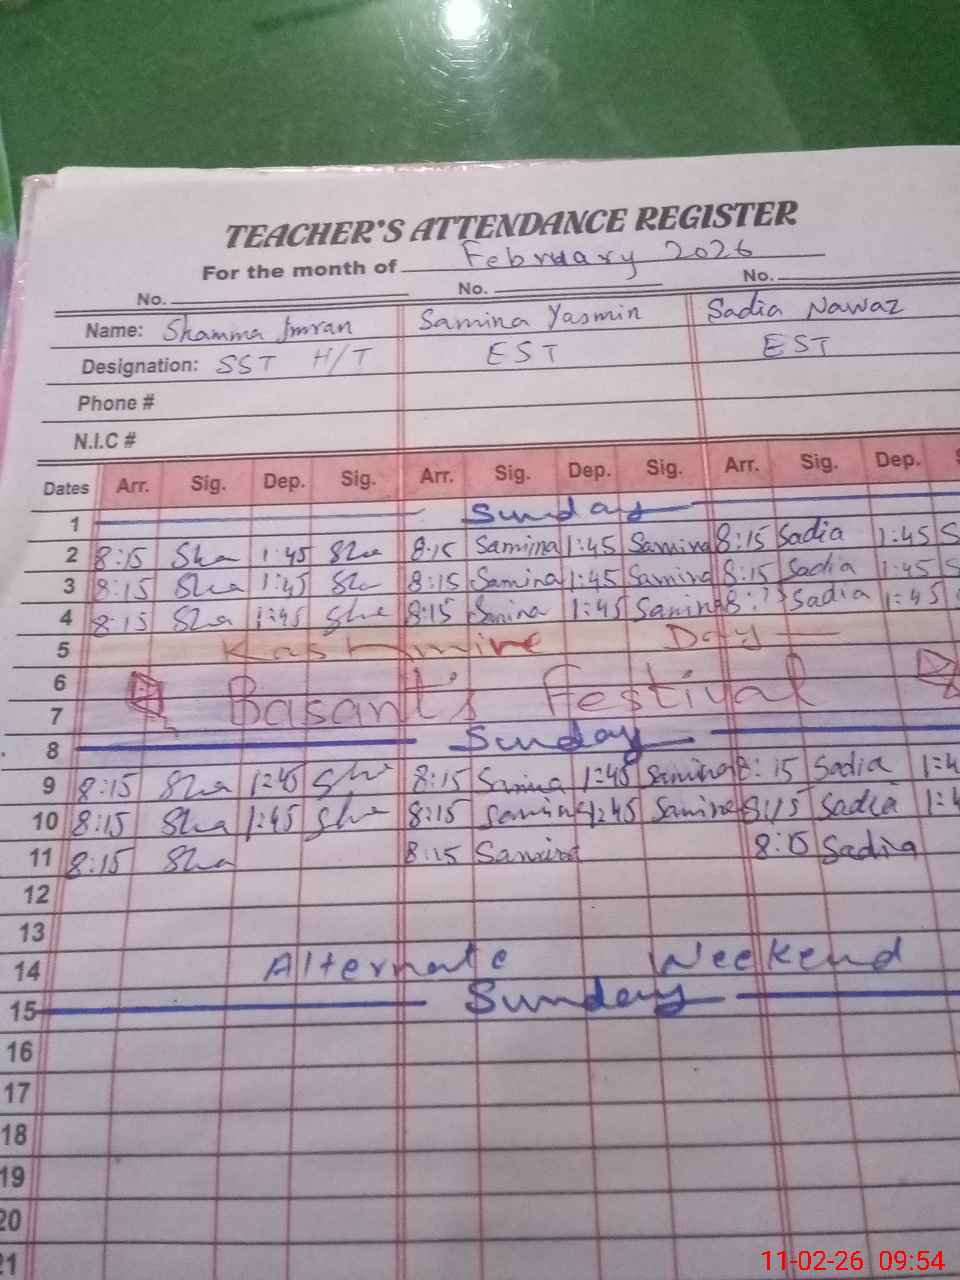 TEACHER'S ATTENDANCE REGISTER
For the month of February 2026
No. No. No.
Name: Shamma Imran Samina Yasmin Sadia Nawaz
Designation: SST H/T EST EST
Phone #
N.I.C #
Dates Arr. Sig. Dep. Sig. Arr. Sig. Dep. Sig. Arr. Sig. Dep.
1 Sunday
2 8:15 Sha 1:45 Sha 8:15 Samina 1:45 Samina 8:15 Sadia 1:45 S
3 8:15 Sha 1:45 Sha 8:15 Samina 1:45 Samina 8:15 Sadia 1:45 S
4 8:15 Sha 1:45 Sha 8:15 Samina 1:45 Samina Sadia 1:45
5 Kashmire Day
6
Basant's Festival
7
8 Sunday
9 8:15 Sha 1:45 Sha 8:15 Samina 1:45 Samina 8:15 Sadia
10 8:15 Sha 1:45 Sha 8:15 Samina 1:45 Samina 8:15 Sadia
11 8:15 Sha 8:15 Samina 8:15 Sadia
12
13
14 Alternate Weekend
15 Sunday
16
17
18
19
20
21
11-02-26 09:54